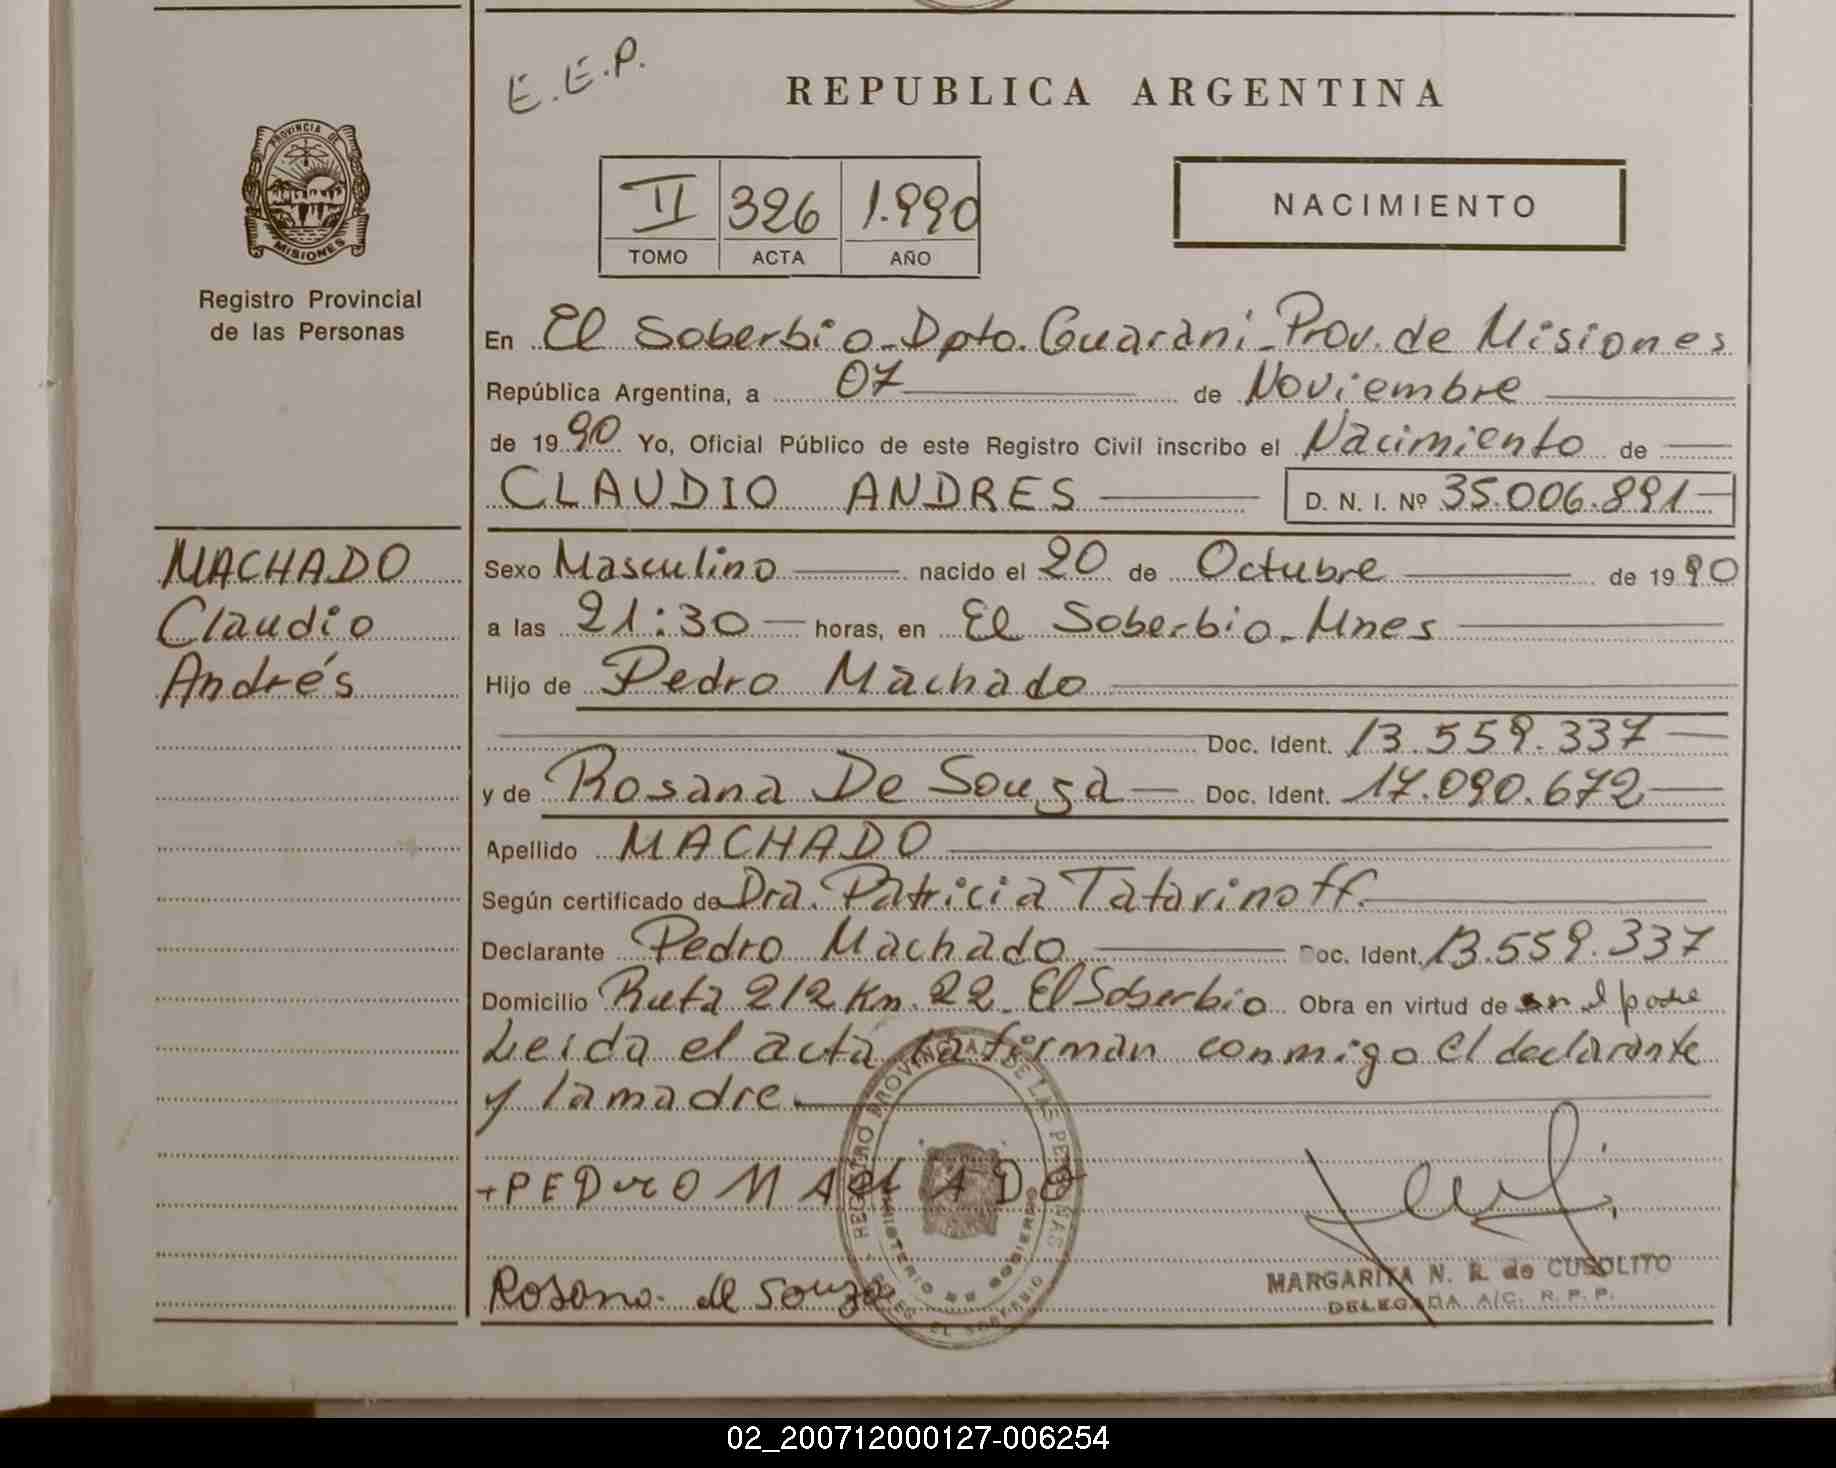 E.E.P.
REPUBLICA ARGENTINA
PROVINCIA DE
MISIONES
Registro Provincial
de las Personas
II 326 1.990
TOMO ACTA AÑO
NACIMIENTO
En El Soberbio-Dpto. Guarani-Prov. de Misiones
República Argentina, a 07 de Noviembre
de 1990 Yo, Oficial Público de este Registro Civil inscribo el Nacimiento de
CLAUDIO ANDRES D. N. I. Nº 35.006.891
MACHADO
Claudio
Andrés
Sexo Masculino nacido el 20 de Octubre de 1990
a las 21:30 horas, en El Soberbio-Mnes
Hijo de Pedro Machado
Doc. Ident. 13.559.337
y de Rosana De Souza Doc. Ident. 17.090.672
Apellido MACHADO
Según certificado de Dra. Patricia Tatarinoff.
Declarante Pedro Machado Doc. Ident. 13.559.337
Domicilio Ruta 212 Km. 22 El Soberbio Obra en virtud de
Leida el acta la firman conmigo el declarante
y la madre.
REGISTRO PROVINCIAL DE LAS PERSONAS
MINISTERIO DE GOBIERNO
EL SOBERBIO
+PEDrO MACHADO
Rosana de Souza
MARGARITA N. R. de CUSOLITO
DELEGADA A/C. R. P. P.
02_200712000127-006254